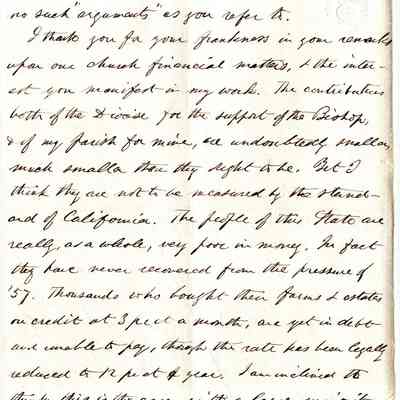 no such "arguments" as you refer to.
I thank you for your frankness in your remarks
upon our church financial matters, & the inter-
est you manifest in my work. The contributions
both of the Diocese for the support of the Bishop,
& of my Parish for mine, are undoubtedly smaller,
much smaller than they ought to be. But I
think they are not to be measured by the stand-
ard of California. The people of this State are
really, as a whole, very poor in money. In fact
they have never recovered from the pressure of
'57. Thousands who bought their farms & estates
on credit at 3 pr ct a month, are yet in debt
and unable to pay, though the rate has been legally
reduced to 12 pr ct a year. I am inclined to
think this is the case with a large